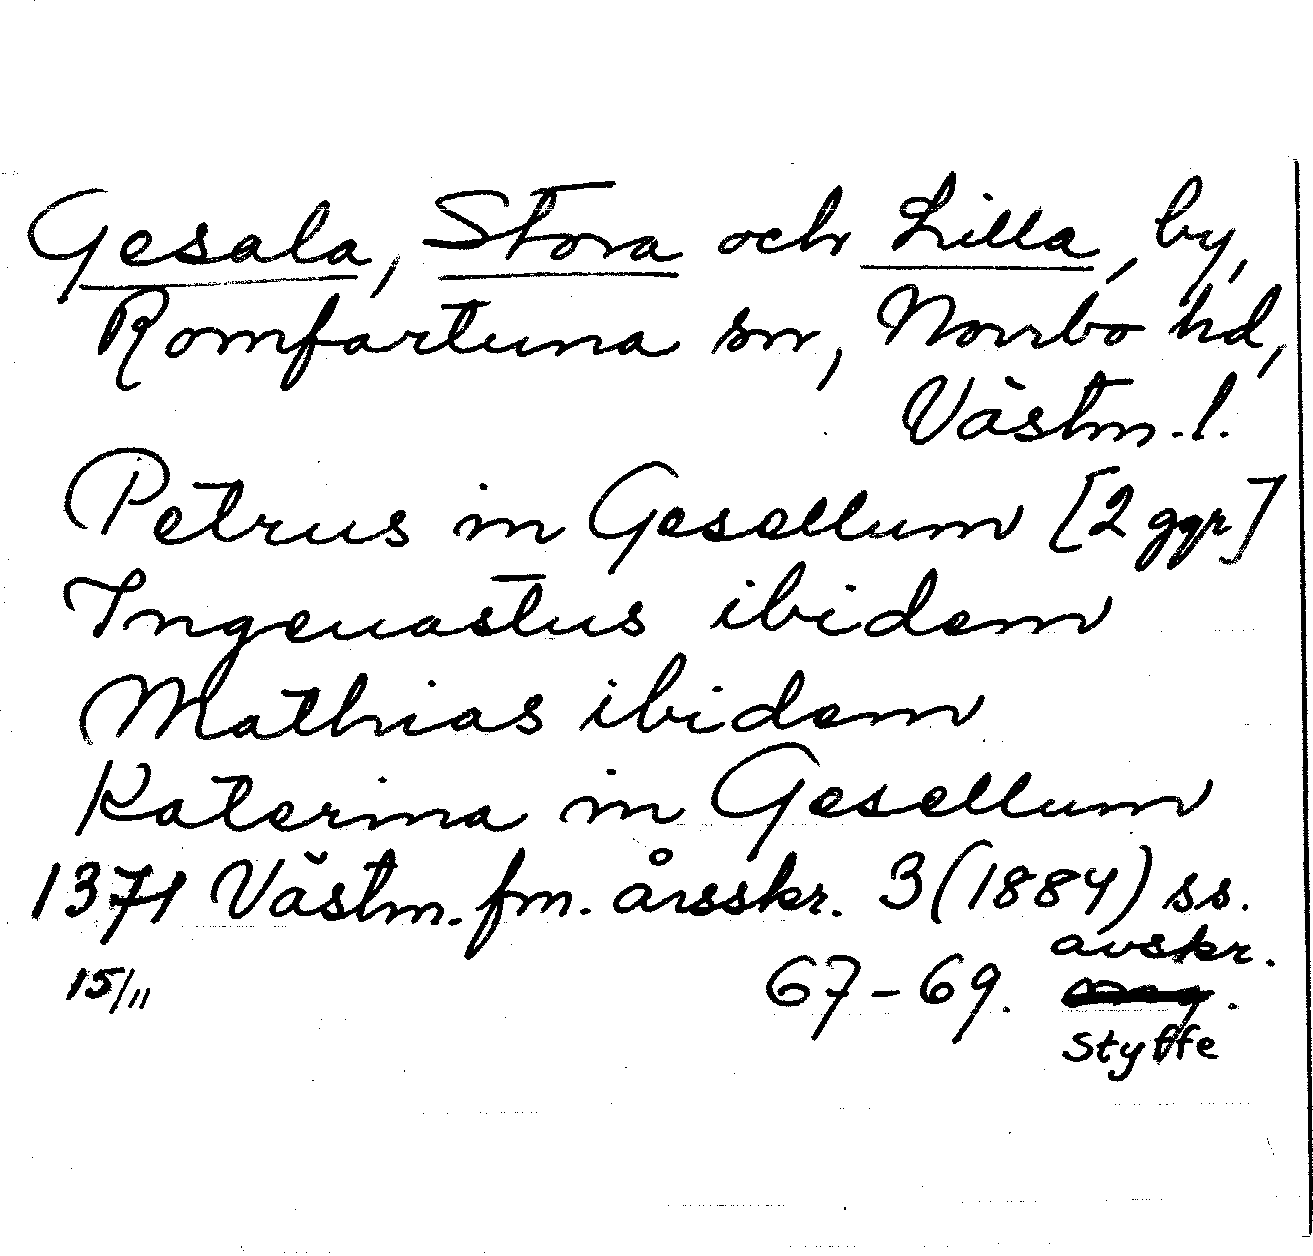 Gesala, Stora och Lilla, by,
Romfartuna sn, Norrbo hd,
Västm. l.
Petrus in Gesellum [2 ggr]
Ingeuastus ibidem
Mathias ibidem
Katerina in Gesellum
1371 Västm. fm. årsskr. 3 (1884) ss.
15/11 67-69. avskr.
Styffe